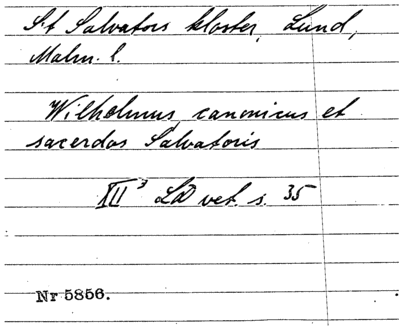 S:t Salvators kloster, Lund,
Malm. l.
Wilhelmus, canonicus et
sacerdos Salvatoris
XII³ LD vet. s. 35
Nr 5856.